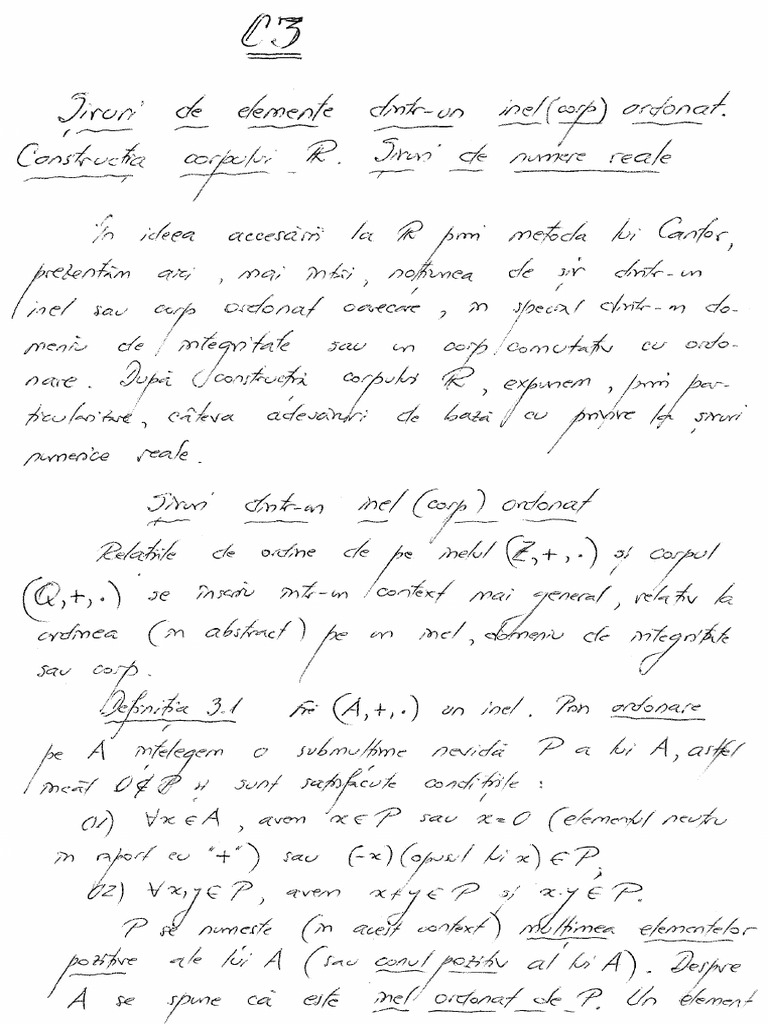 C3
Şiruri de elemente dintr-un inel (corp) ordonat.
Construcția corpului ℝ. Şiruri de numere reale
În ideea accesării la ℝ prin metoda lui Cantor,
prezentăm aici, mai întâi, noțiunea de șir dintr-un
inel sau corp ordonat oarecare, în special dintr-un do-
meniu de integritate sau un corp comutativ cu ordo-
nare. După construcția corpului ℝ, expunem, prin par-
ticularizare, câteva adevăruri de bază cu privire la șiruri
numerice reale.
Şiruri dintr-un inel (corp) ordonat
Relațiile de ordine de pe inelul (ℤ,+,·) și corpul
(ℚ,+,·) se înscriu într-un context mai general, relativ la
ordinea (în abstract) pe un inel, domeniu de integritate
sau corp.
Definiția 3.1 Fie (A,+,·) un inel. Prin ordonare
pe A înțelegem o submulțime nevidă P a lui A, astfel
încât 0∉P și sunt satisfăcute condițiile:
O1) ∀x∈A, avem x∈P sau x=0 (elementul neutru
în raport cu "+") sau (-x)(opusul lui x)∈P;
O2) ∀x,y∈P, avem x+y∈P și x·y∈P.
P se numește (în acest context) mulțimea elementelor
pozitive ale lui A (sau conul pozitiv al lui A). Despre
A se spune că este inel ordonat de P. Un element